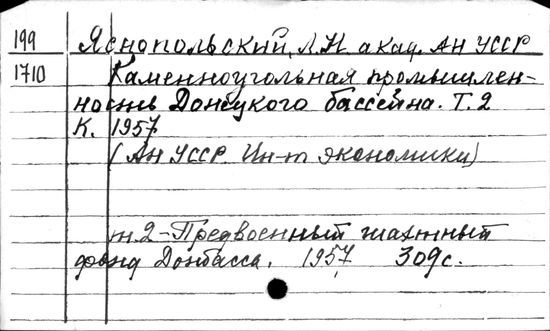 199 Яснопольский, Л.Н акад. Ан УССР
1710 Каменноугольная промышлен-
ность Донецкого бассейна. Т. 2
К. 1957
(Ан УССР. Ин-т экономики)
т. 2 - Предвоенный шахтный
фонд Донбасса. 1957 309с.